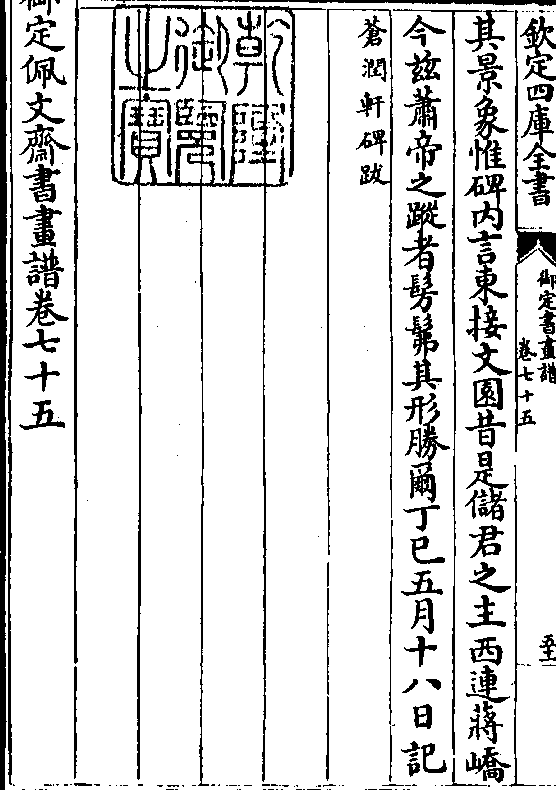 欽定四庫全書
御定書畫譜
卷七十五
五十一
其景象惟碑内言東接文園昔是儲君之主西連蔣嶠
今茲蕭帝之蹤者髣髴其形勝爾丁巳五月十八日記
蒼潤軒碑跋
乾隆
御覽
之寶
御定佩文齋書畫譜卷七十五